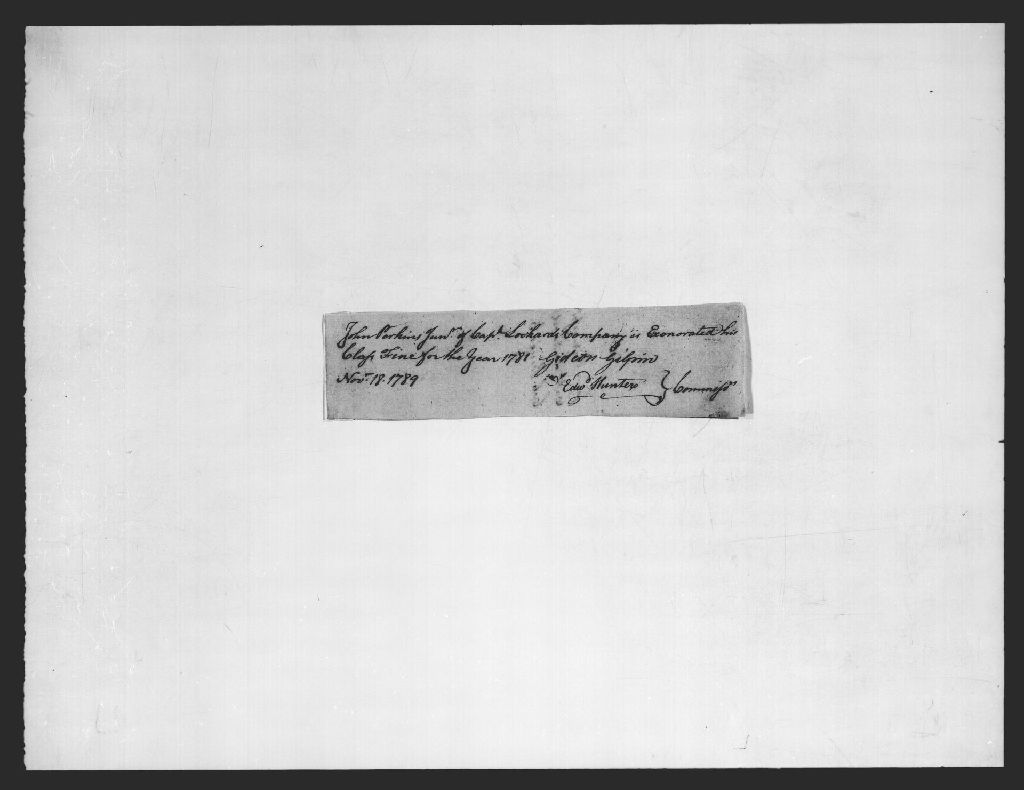 John Perkins Junr of Capt Lockards Company is Exonorated his
Class Fine for the Year 1781 Gideon Gilpin
Novr 18. 1789
Edwd Hunter } Commissrs